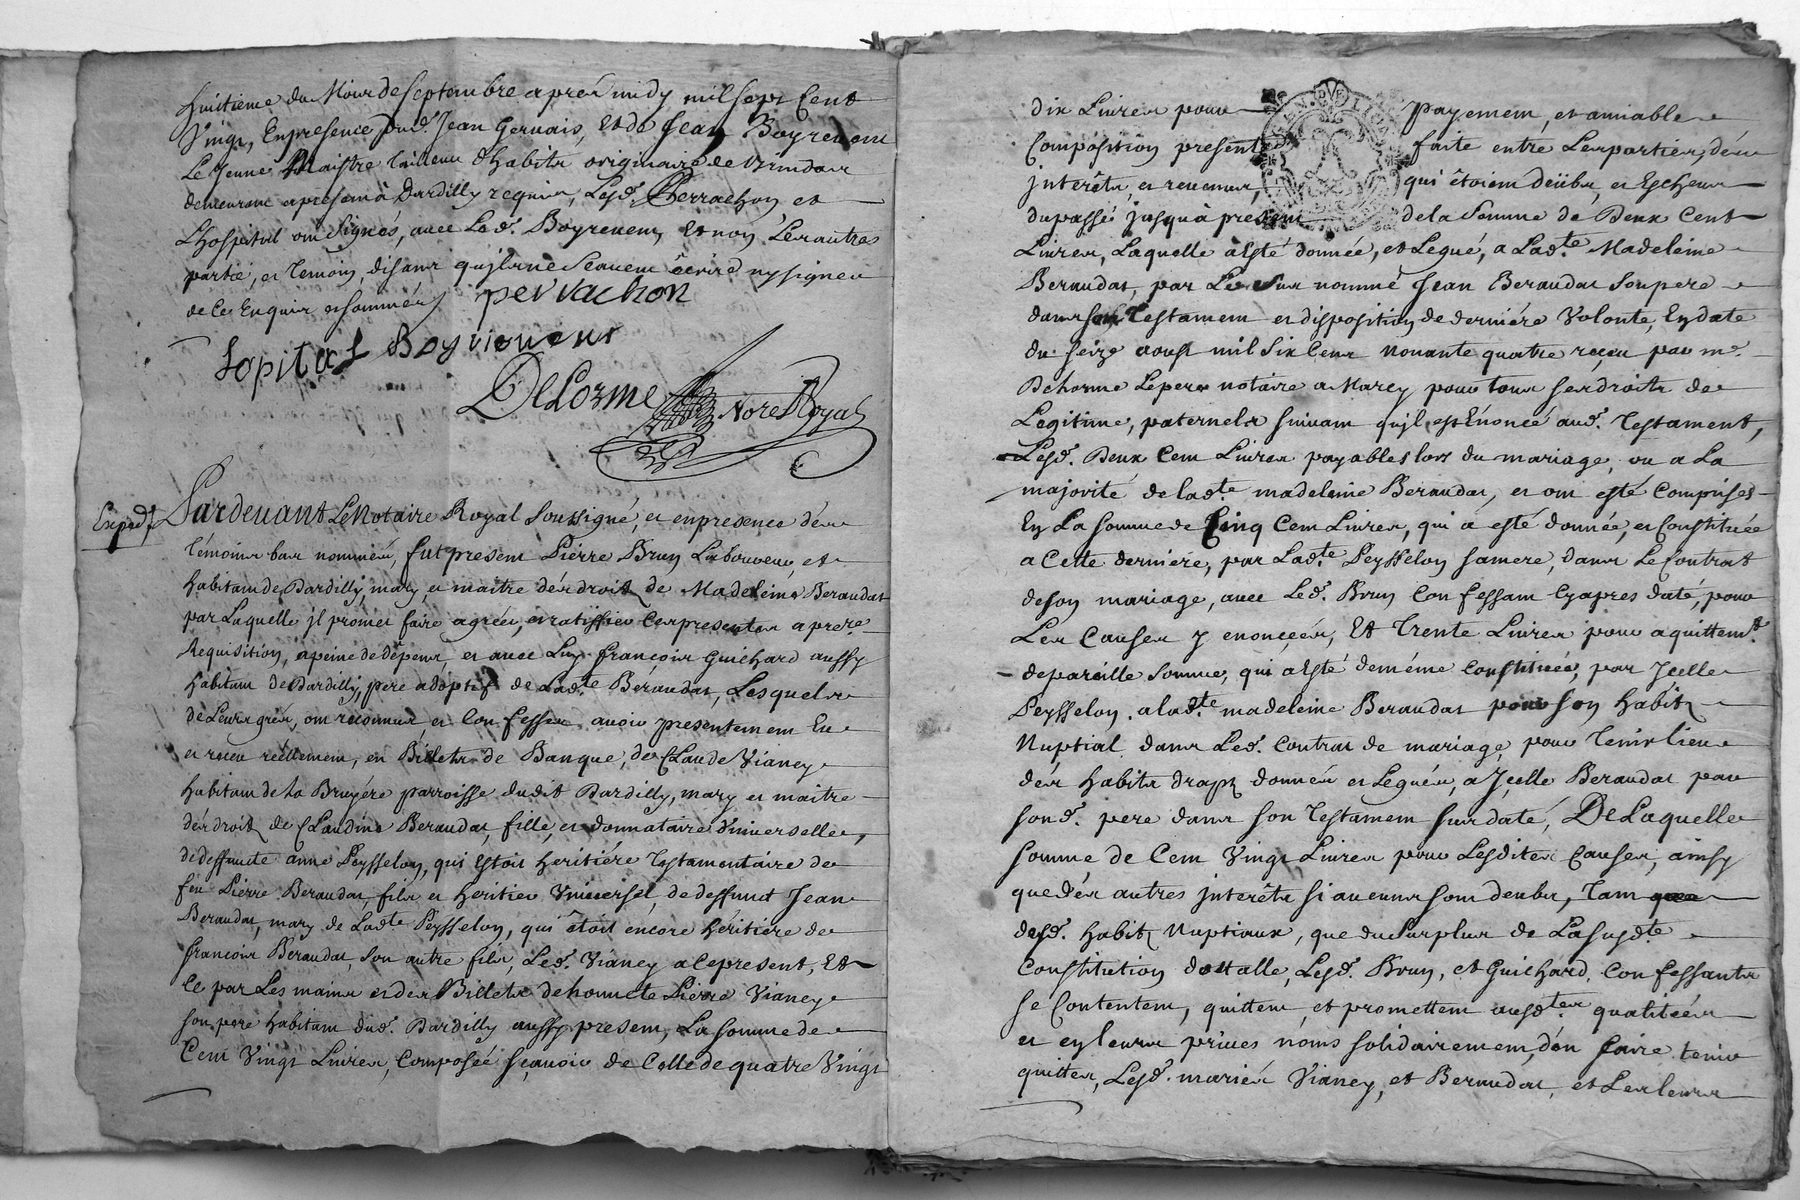 huitieme du Mois de Septembre apres midy mil sept Cent
Vingt, En presence dud. Jean Gervais, et de Jean Boyrivent
Le Jeune Maistre Tailleur d'habits originaire de
demeurant a present à Dardilly requis, Lesd. Perrachon et
L'hospital ont Signés, avec Led. Boyrivent, et non Les autres
partie, et Temoin, disant qu'ils ne Scavent écrire ny signer
de Ce Enquis et sommés perrachon
Lopital Boyriveut
DeLorme Nore Royal
Exped.
Pardevant Le Notaire Royal Soussigné, et en presence dés
témoins bas nommés, fut present Pierre Brun Laboureur, et
habitant de Dardilly, mary et maitre dés droits de Madeleine Beraudat
par Laquelle jl promet faire agréer, et ratiffier Ces presentes a pre.re
Requisition, a peine de dépens, et avec Luy françois Guichard aussy
habitant de Dardilly, pere adoptif de Lad.te Beraudat, Lesquels
de Leurs grés, ont reconnus et Confessés avoir presentement Eu
et receu réellement, en Billets de Banque, de Claude Vianey
habitant de la Bruyére parroisse dudit Dardilly, mary et maitre
dés droits de Claudine Beraudat, fille, et donnataire Universelle,
de deffuncte anne Peysselon, qui Estoit heritiére Testamentaire de
feu Pierre Beraudat, fils et heritier Universel, de deffunct Jean
Beraudat, mary de Lad.te Peysselon, qui êtoit encore héritiére de
françois Beraudat, Son autre fils, Led. Vianey a Ce present, Et
Ce par Les mains et des Billets de honnete Pierre Vianey
son pere habitant dud. Dardilly aussy present, La somme de
Cent Vingt Livres, Composée sçavoir de Celle de quatre Vingt
dix Livres pour payement, et amiable
Composition presente faite entre Les parties, dés
jnterêts, et revenus, qui étoient deübs, et Escheus
du passé jusqu'à present de la Somme de Deux Cent
Livres, Laquelle a Esté donnée, et Legué, a Lad.te Madeleine
Beraudat, par Le Sus nommé Jean Beraudat Son pere
dans son Testament et disposition de derniére Volonte, En date
du seize aoust mil Six Cens nonante quatre reçeu par m.e
Delorme Le pere notaire a Marcy pour tous ses droits de
Legitime, paternels suivant qu'jl est Enoncé aud. Testament,
Lesd. Deux Cent Livres payables lors du mariage, ou a La
majorité de lad.te madeleine Beraudat, et ont esté Comprises
En La somme de Cinq Cent Livres, qui a esté donnée, et Constituée
a Cette derniére, par Lad.te Peysselon sa mere, dans Le Contrat
de son mariage, avec Led. Brun Confessant Cy apres daté, pour
Les Causes y enoncées, Et Trente Livres pour aquittem.t
de pareille Somme, qui a Esté de méme Constituée, par Jcelle
Peysselon, a lad.te madeleine Beraudat pour son habits
Nuptial dans Led. Contrat de mariage, pour Tenir lieu
dés habits draps donnés et Legués, a Jcelle Beraudat par
sond. pere dans son Testament sus daté, De Laquelle
somme de Cent Vingt Livres pour Lesdites Causes, ainsy
que dés autres jnterêts si aucuns sont deubs, tant
desd. habits Nuptiaux, que du Surplus de La susd.te
Constitution dottalle, Lesd. Brun, et Guichard, Confessants
se Contentent, quittent, et promettent ausd.tes qualitées
et en leurs privés noms solidairement, d'en faire tenir
quittes, Lesd. mariés Vianey, et Beraudat, et Les leurs